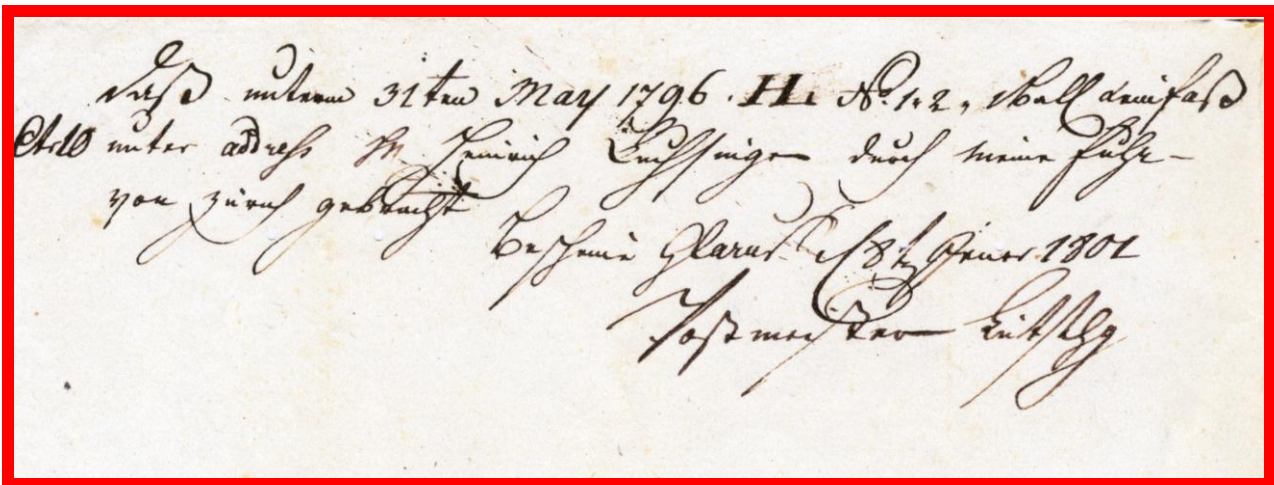 daß unterm 31ten May 1796. H. No. 1. 2.
unter address Hr Heinrich Luchsinger durch meine Fuhr-
von Zürich gebracht
Bescheine Glarus Jener 1801
Postmeister